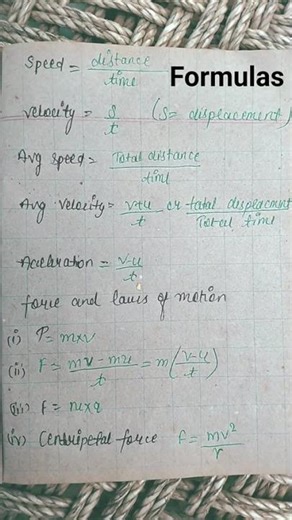 Formulas
Speed = distance / time
Velocity = s / t (S= displacement)
Avg speed = Total distance / time
Avg velocity = v+u / t or total displacment / Total time
Acceleration = v-u / t
force and laws of motion
(i) P = m×v
(ii) F = mv - mu / t = m(v-u / t)
(iii) F = m×a
(iv) Centripetal force F = mv² / r